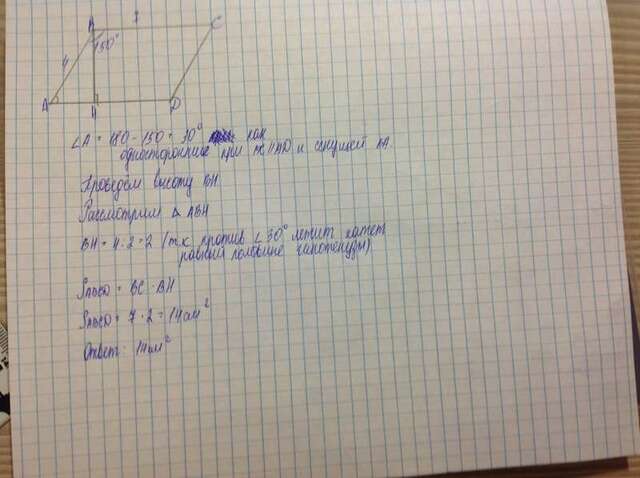 B 7 C
150°
4
A H D
∠A = 180 - 150 = 30° как
односторонние при BC || AD и секущей BA
Проведём высоту BH
Рассмотрим Δ ABH
BH = 4 : 2 = 2 (т.к. против ∠30° лежит катет
равный половине гипотенузы)
SABCD = BC · BH
SABCD = 7 · 2 = 14 см²
Ответ: 14 см²